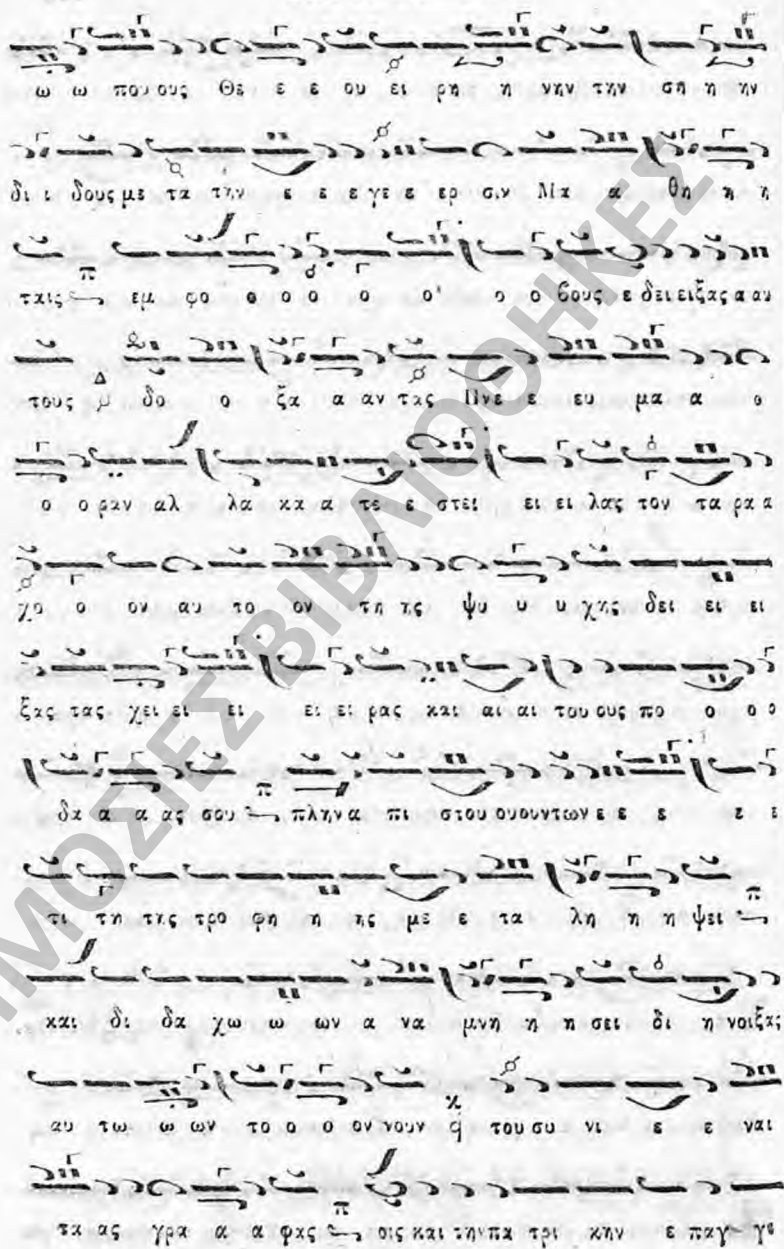 ω ω που ους Θε ε ε ου ει ρη η νην την ση η ην
δι ι δους με τα την ε ε ε γε ε ερ σιν Μα α θη η η
ταις π εμ φο ο ο ο ο ο ο ο βους ε δει ειξας α αυ
τους Δ δο ο ζα α αν τας Πνε ε ευ μα α ο
ο ο ραν αλ λα κα α τε ε στει ει ει λας τον τα ρα α
χο ο ον αυ το ον τη ης ψυ υ υ χης δει ει ει
ξας τας χει ει ει ει ει ρας και αι αι του ους πο ο ο ο
δα α α ας σου π πλην α πι στου ου ουντων ε ε ε ε ε
τι τη της τρο φη η ης με ε τα λη η η ψει π
και δι δα χω ω ων α να μνη η η σει δι ηνοιξας
αυ τω ω ων το ο ο ον νουν του συ νι ε ε ναι
τα ας γρα α α φας π οις και την πα τρι κην ε παγ γε
ΗΜΟΣΙΕΣ ΒΙΒΛΙΟΘΗΚΕΣ